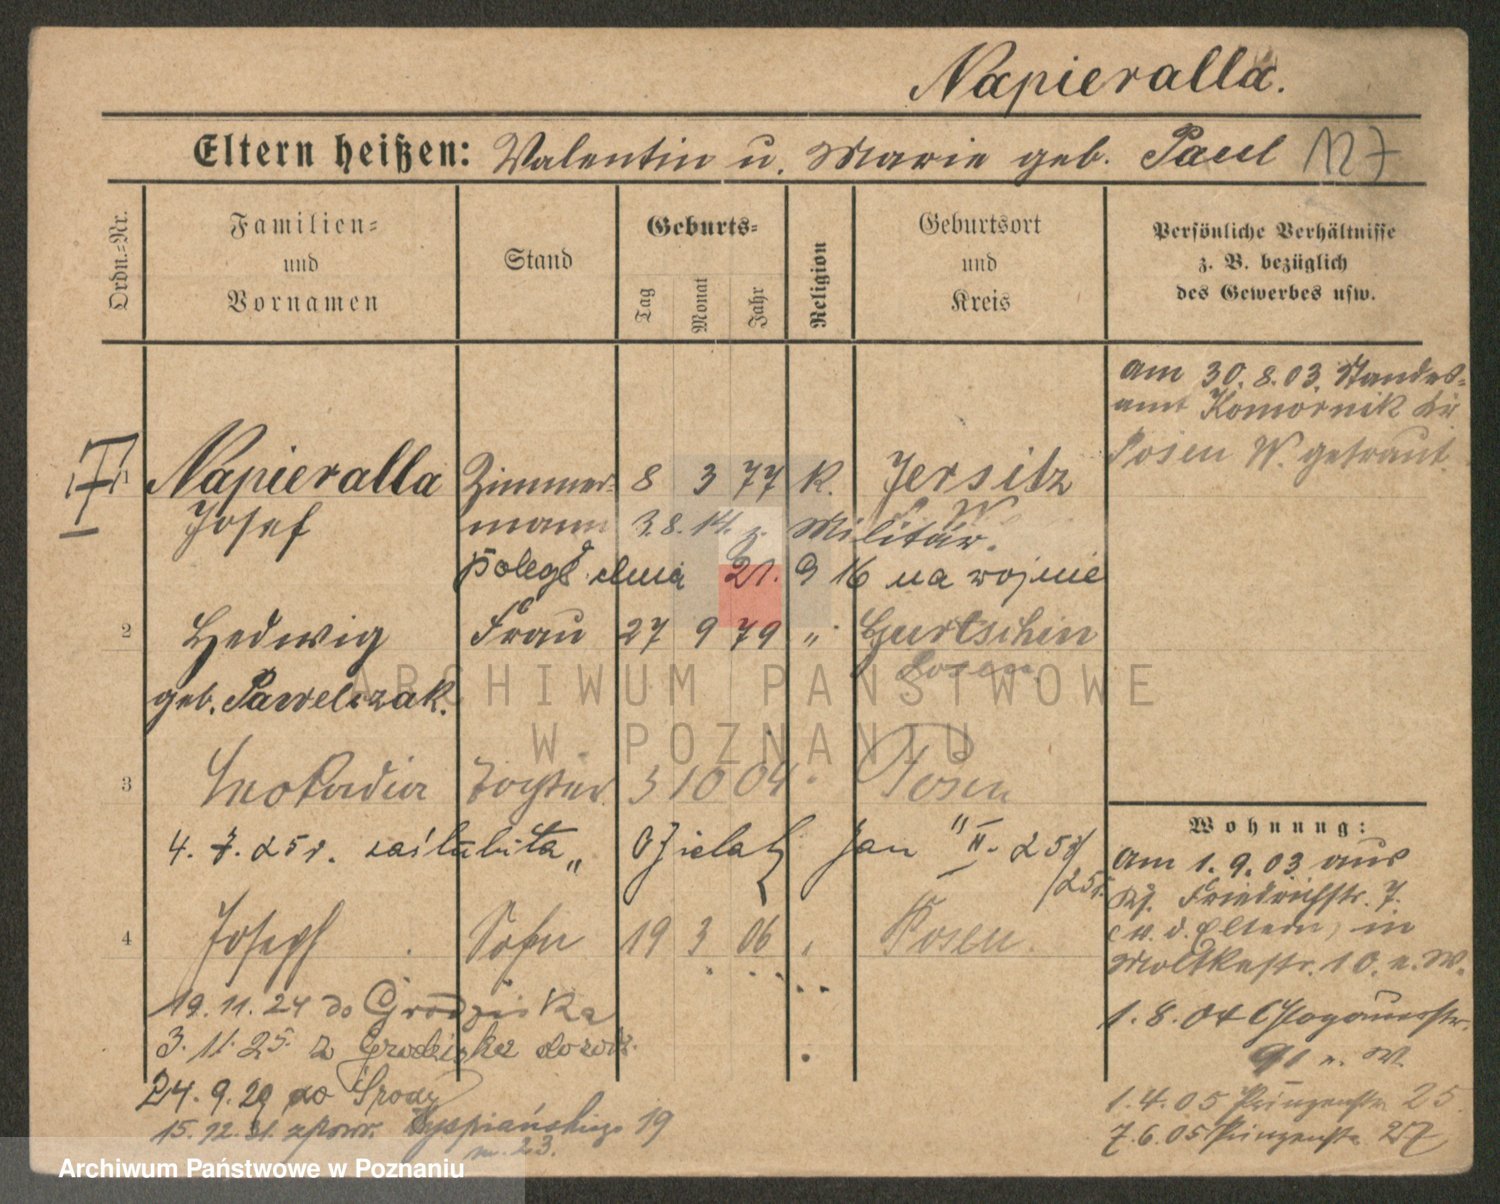 Napieralla.
Eltern heißen: Valentin u. Marie geb. Paul 127
Ordn.-Nr.
Familien- und Vornamen
Stand
Geburts-
Tag
Monat
Jahr
Religion
Geburtsort und Kreis
Persönliche Verhältnisse
z. B. bezüglich
des Gewerbes usw.
am 30.8.03. Standes-
amt Komornik Kr
Posen W. getraut.
1 Napieralla Zimmer- 8 3 77 K. Jersitz
Josef mann 3.8.14. z. Militär.
poległ dnia 21. 9 16 na wojnie
2 Hedwig Frau 27 9 79 " Gurtschin
Posen
geb. Pawelczak.
3 Leokadia Tochter 3 10 04 " Posen
4. 7. 25 r. zaślubiła " Jan II. 253/
/25r.
4 Joseph Sohn 19 3 06 Posen.
19.11.24 do Grodziska
3.11.25. z Grodziska
24.9.29 do Środy
15.12.31. Wyspiańskiego 19
m. 23.
Wohnung:
am 1.9.03 aus
Friedrichstr. 7.
(w. d. Eltern) in
Moltkestr. 10. n. W.
1.8.04 Glogauerstr.
91 n. W.
1.4.05 Prinzenstr 25
7.6.05 Prinzenstr 27
ARCHIWUM PAŃSTWOWE
W POZNANIU
Archiwum Państwowe w Poznaniu